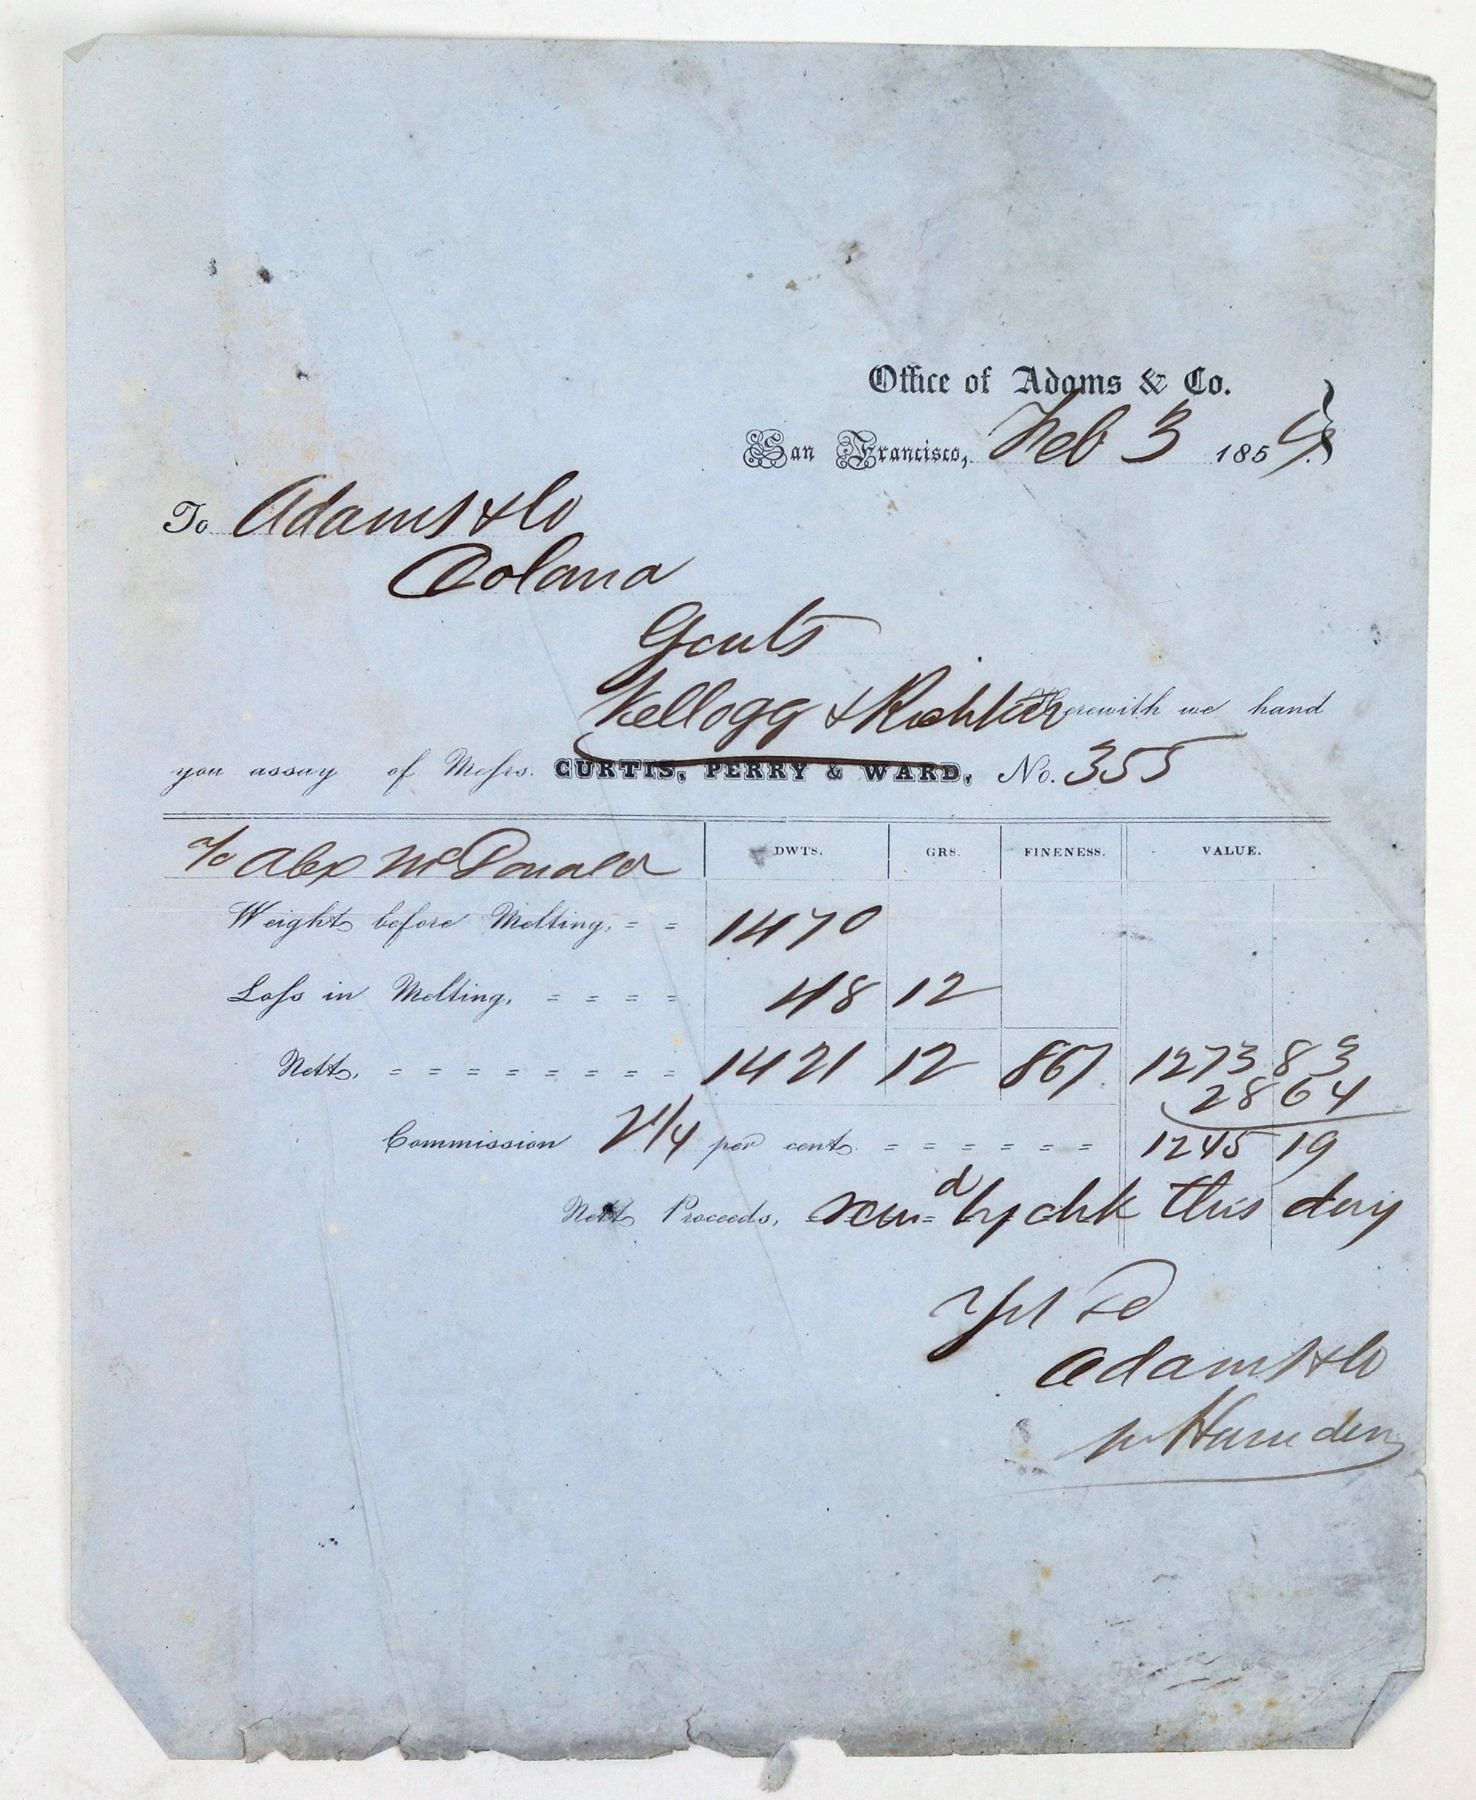 Office of Adams & Co.
San Francisco, Feb 3 1854.
To Adams & Co
Coloma
Gents
Kellogg & Richter Herewith we hand
you assay of Messrs. CURTIS, PERRY & WARD, No. 355
a/c Alex McDonald DWTS. GRS. FINENESS. VALUE.
Weight before Melting, = = 1470
Loss in Melting, = = = = 48 12
Nett, = = = = = = = = = 1421 12 867 1273 83
28 64
Commission 2 1/4 per cent = = = = = = 1245 19
Nett Proceeds, by chk this day
Adams & Co